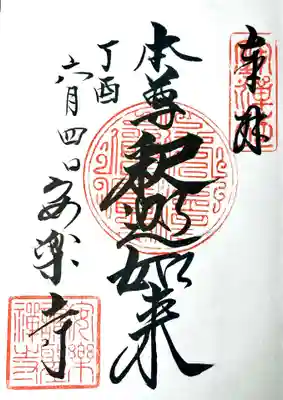 奉拝
本尊釈迦如来
丁酉
六月四日安楽寺
安樂禅寺